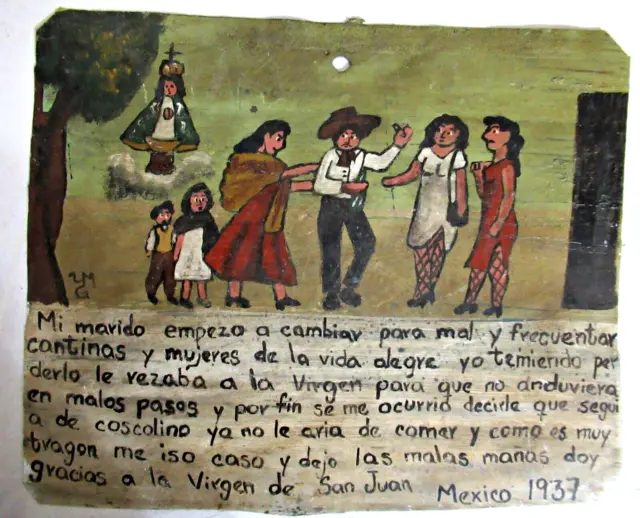 YM
G
Mi marido empezo a cambiar para mal y frecuentar
cantinas y mujeres de la vida alegre yo temiendo per
derlo le rezaba a la Virgen para que no anduviera
en malos pasos y por fin se me ocurrio decirle que segui
a de coscolino ya no le aria de comer y como es muy
tragon me iso caso y dejo las malas mañas doy
gracias a la Virgen de San Juan Mexico 1937